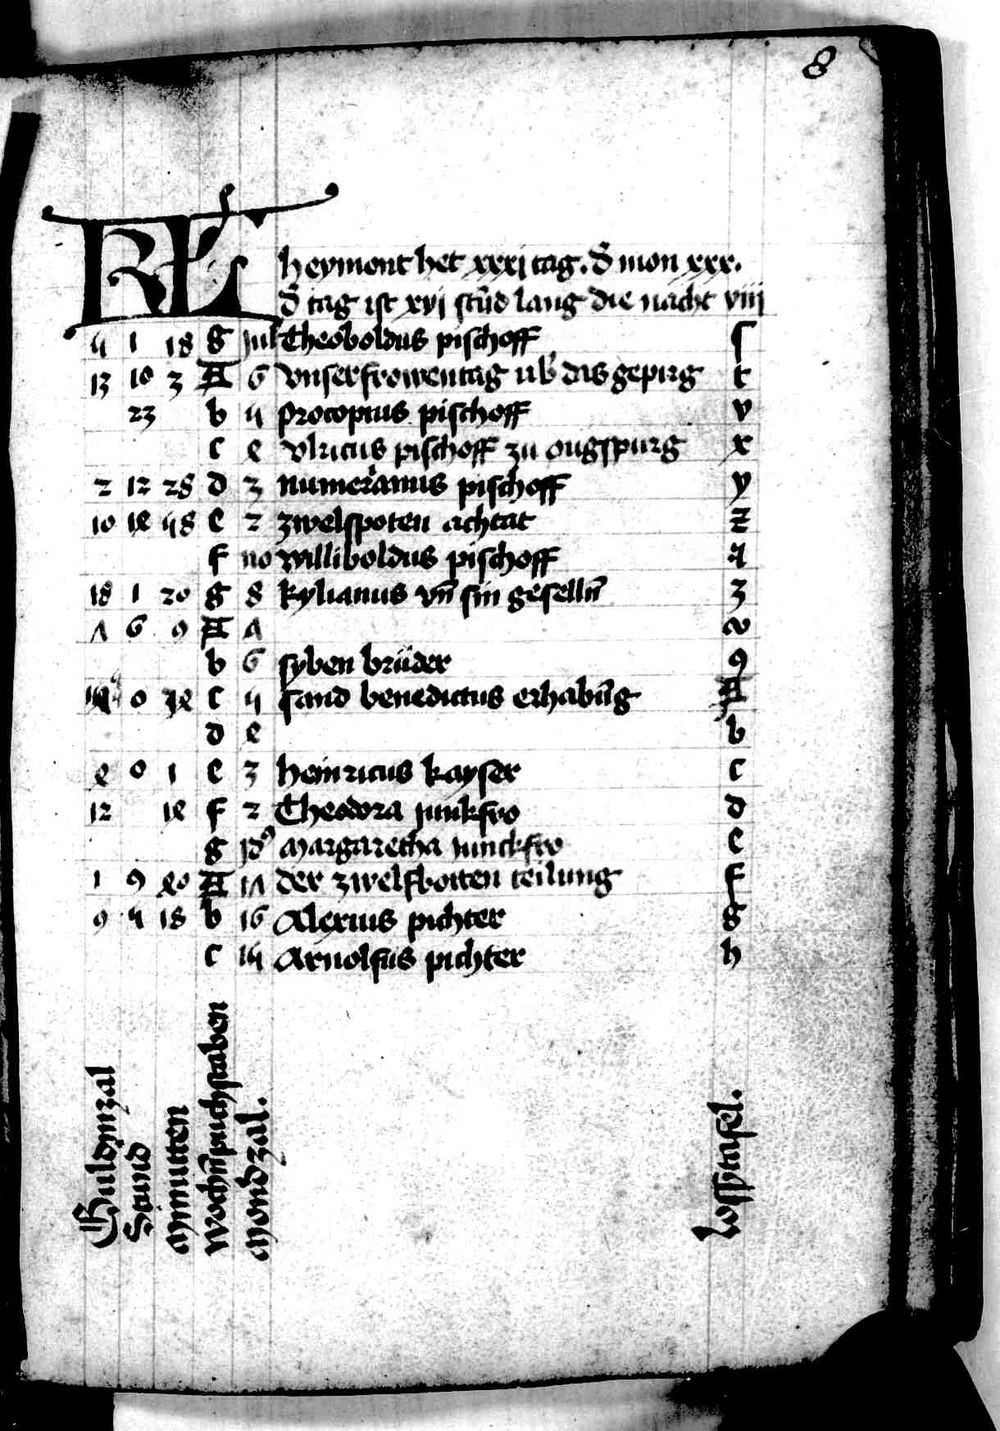 8
KL heymont het xxxj tag. d mon xxx.
d tag ist xvj stūd lang die nacht viij
4 1 18 g jul Theoboldus pischoff ſ
13 10 3 A 6 vnserfrowentag ub das gepirg t
23 b 4 procopius pischoff v
c e vlricus pischoff zu ougspurg x
2 12 28 d 3 numerianus pischoff y
10 1e 48 e 2 zwelfpoten achtat z
f no williboldus pischoff
18 1 20 g 8 kylianus vn̄ sin geselln̄
Λ 6 9 A Λ
b 6 syben brüder 9
0 c 4 sand benedictus erhabūg A
d e b
e 0 1 e 3 heinricus kayser c
12 1e f 2 Theodora junkfro d
g jd9 margaretha junckfro e
1 9 A 1Λ der zwelfbotten teilung f
9 4 18 b 16 Alexius pichter g
c 14 Arnolfus pichter h
Guldinzal
Stund
Minutten
Wochn̄puchstaben
Mondzal.
losstafel.